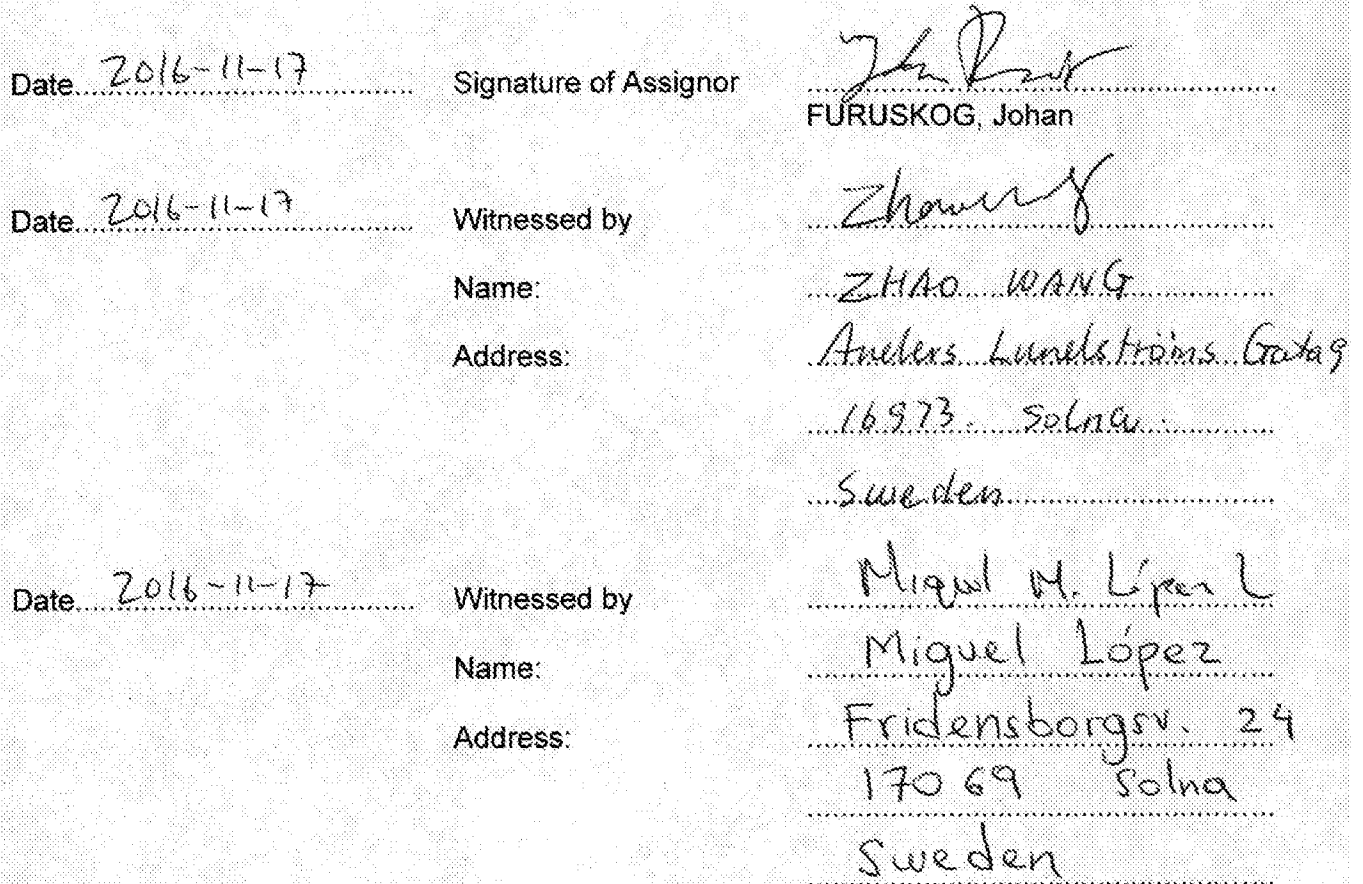 Date 2016-11-17 Signature of Assignor
FURUSKOG, Johan
Date 2016-11-17 Witnessed by
Name: ZHAO WANG
Address: Anders Lundströms Gata 9
16973. Solna.
Sweden
Date 2016-11-17 Witnessed by Miguel M. López L
Name: Miguel López
Address: Fridensborgsv. 24
170 69 Solna
Sweden